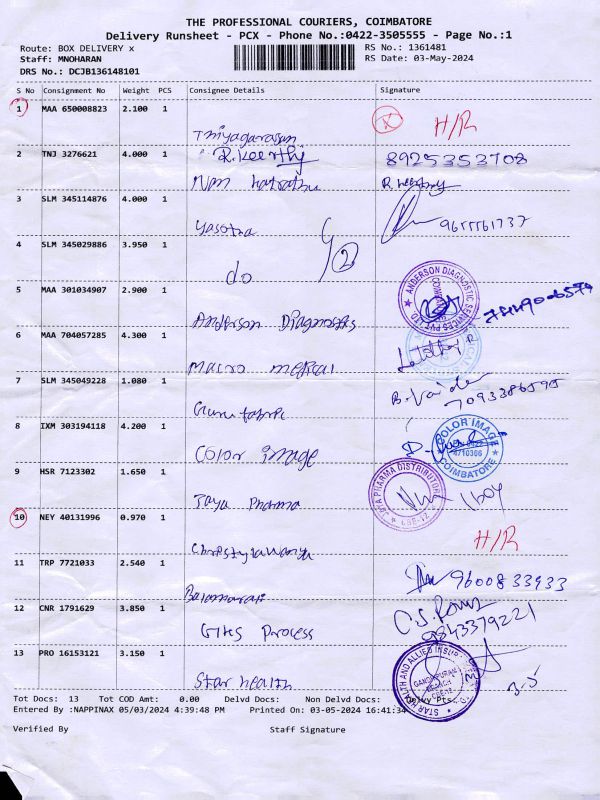 THE PROFESSIONAL COURIERS, COIMBATORE
Delivery Runsheet - PCX - Phone No.:0422-3505555 - Page No.:1
Route: BOX DELIVERY x
RS No.: 1361481
Staff: MNOHARAN
RS Date: 03-May-2024
DRS No.: DCJB136148101
S No Consignment No Weight PCS Consignee Details Signature
1 MAA 650008823 2.100 1
Thiyagarasan
X H/R
2 TNJ 3276621 4.000 1
R.Keerthy
8925353708
3 SLM 345114876 4.000 1
Yasotha
4 SLM 345029886 3.950 1
do
2
5 MAA 301034907 2.900 1
Anderson Diagnostics
ANDERSON DIAGNOSTIC SERVICES PVT LTD
6 MAA 704057285 4.300 1
Macro medical
7 SLM 345049228 1.080 1
8 IXM 303194118 4.200 1
Color image
COLOR IMAGE
4710366
COIMBATORE
9 HSR 7123302 1.650 1
Jaya Pharma
JAYA PHARMA DISTRIBUTORS
CBE-12
10 NEY 40131996 0.970 1
H/R
11 TRP 7721033 2.540 1
9600833933
12 CNR 1791629 3.850 1
Process
9843379221
13 PRO 16153121 3.150 1
Star health
STAR HEALTH AND ALLIED INSU
GANDHIPURAM
CBE-12
3-5
Tot Docs: 13 Tot COD Amt: 0.00 Delvd Docs: Non Delvd Docs:
Entered By :NAPPINAX 05/03/2024 4:39:48 PM Printed On: 03-05-2024 16:41:34
Verified By Staff Signature